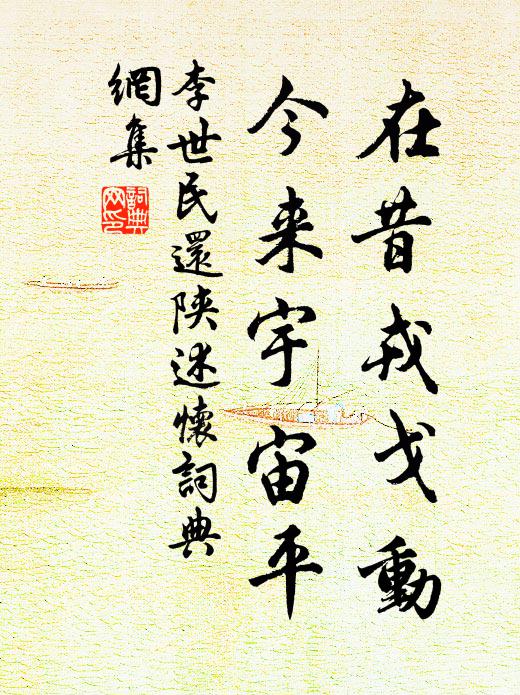 在昔戎戈動
今来宇宙平
李世民還陝述懷詞典
網集
詞典
网印